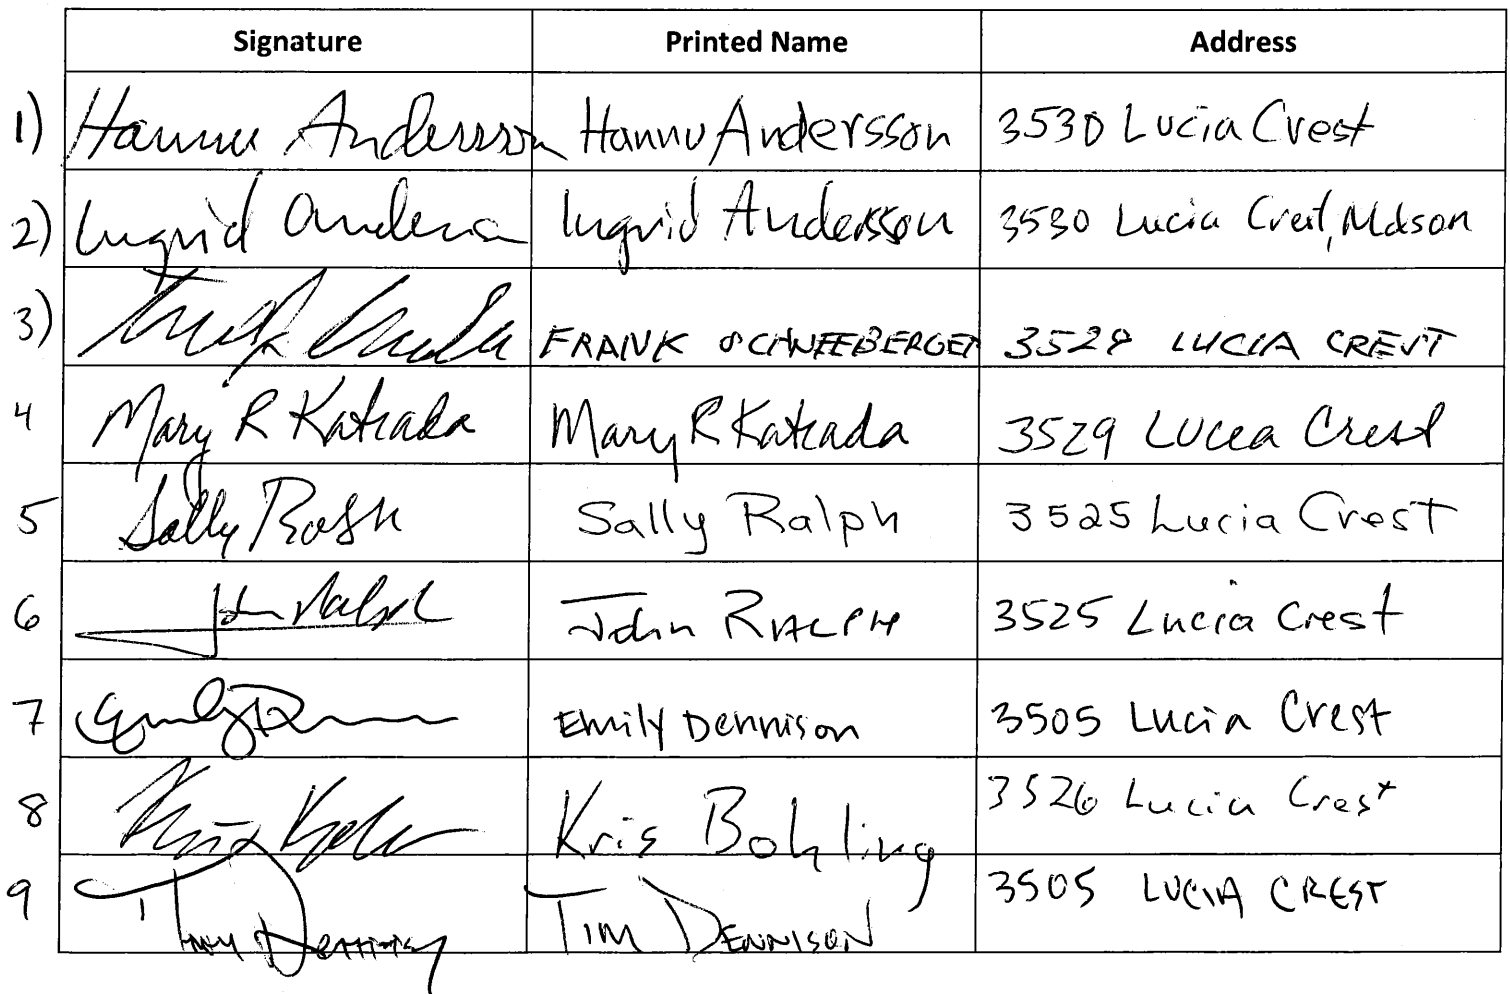 Signature Printed Name Address
1) Hannu Andersson Hannu Andersson 3530 Lucia Crest
2) Ingrid Andersson Ingrid Andersson 3530 Lucia Crest, Mdson
3) FRANK SCHNEEBERGER 3528 LUCIA CREST
4 Mary R Katrada Mary R Katrada 3529 Lucia Crest
5 Sally Ralph Sally Ralph 3525 Lucia Crest
6 John Ralph John RALPH 3525 Lucia Crest
7 Emily Dennison 3505 Lucia Crest
8 Kris Bohling 3526 Lucia Crest
9 Tim Dennison TIM DENNISON 3505 LUCIA CREST